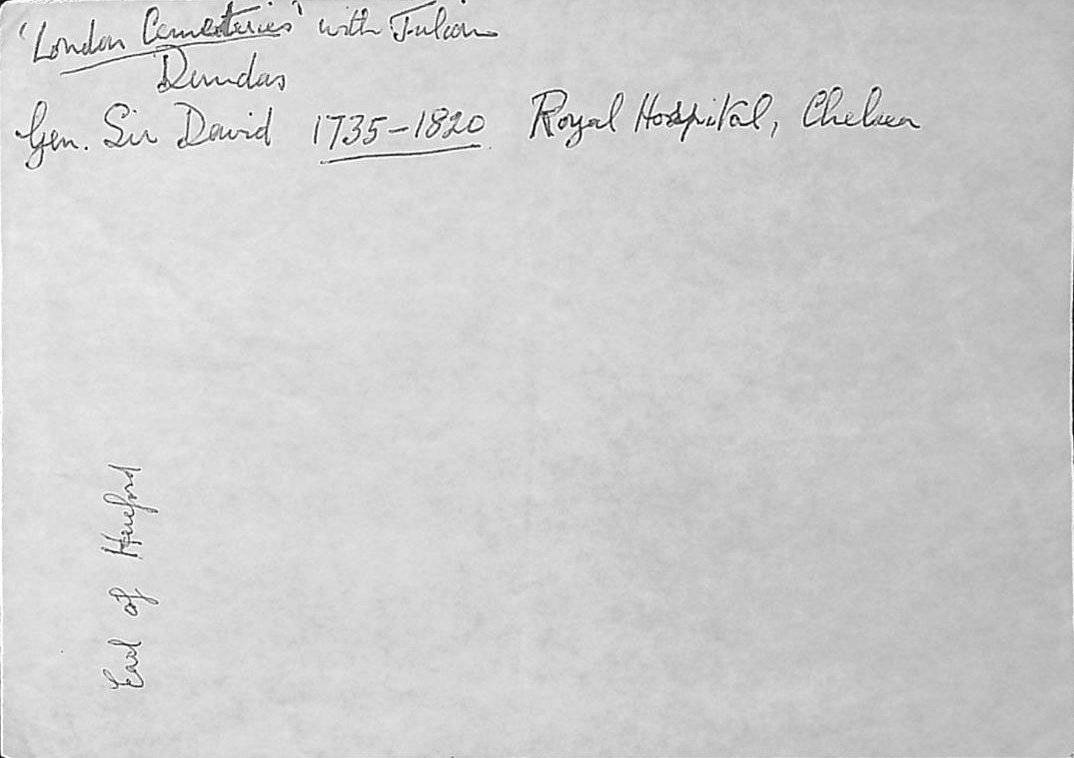 'London Cemeteries' with Julian
Dundas
Gen. Sir David 1735-1820 Royal Hospital, Chelsea
Earl of Hereford